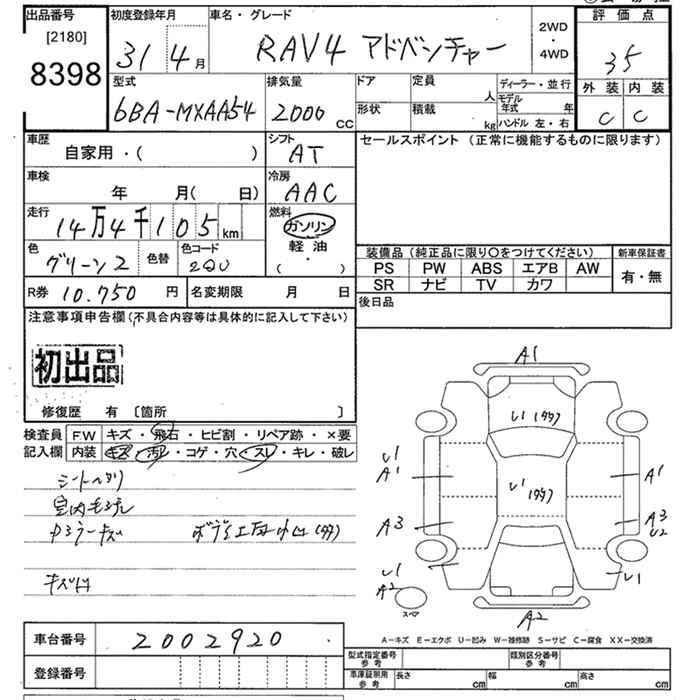 出品番号 初度登録年月 車名・グレード 評価点
[2180]
8398
31年4月 RAV4 アドベンチャー 2WD・4WD 35
型式 排気量 ドア 定員 人 ディーラー・並行 外装 内装
6BA-MXAA54 2000cc 形状 積載 kg モデル年式 年 ハンドル 左・右 C C
車歴 自家用・( ) シフト AT セールスポイント (正常に機能するものに限ります)
車検 年 月( 日) 冷房 AAC
走行 14万4千105km 燃料 ガソリン
軽油
( ・ )
色 グリーン2 色替 色コード 装備品(純正品に限り○をつけてください) 新車保証書
PS PW ABS エアB AW 有・無
SR ナビ TV カワ
R券 10.750円 名変期限 月 日 後日品
注意事項申告欄(不具合内容等は具体的に記入して下さい)
初出品
修復歴 有 〔箇所 〕
検査員 F.W キズ・飛石・ヒビ割・リペア跡・×要
記入欄 内装 キズ・汚レ・コゲ・穴・スレ・キレ・破レ
シートヘタリ
キズ凹
A1
U1
U1
U1
A1
A1
A3
A3
U2
U1
A2
U1
スペア
A2
A-キズ E-エクボ U-凹み W-補修跡 S-サビ C-腐食 XX-交換済
車台番号 2002920
型式指定番号 参考 類別区分番号 参考
登録番号 車庫証明用 参考 長さ cm 幅 cm 高さ cm